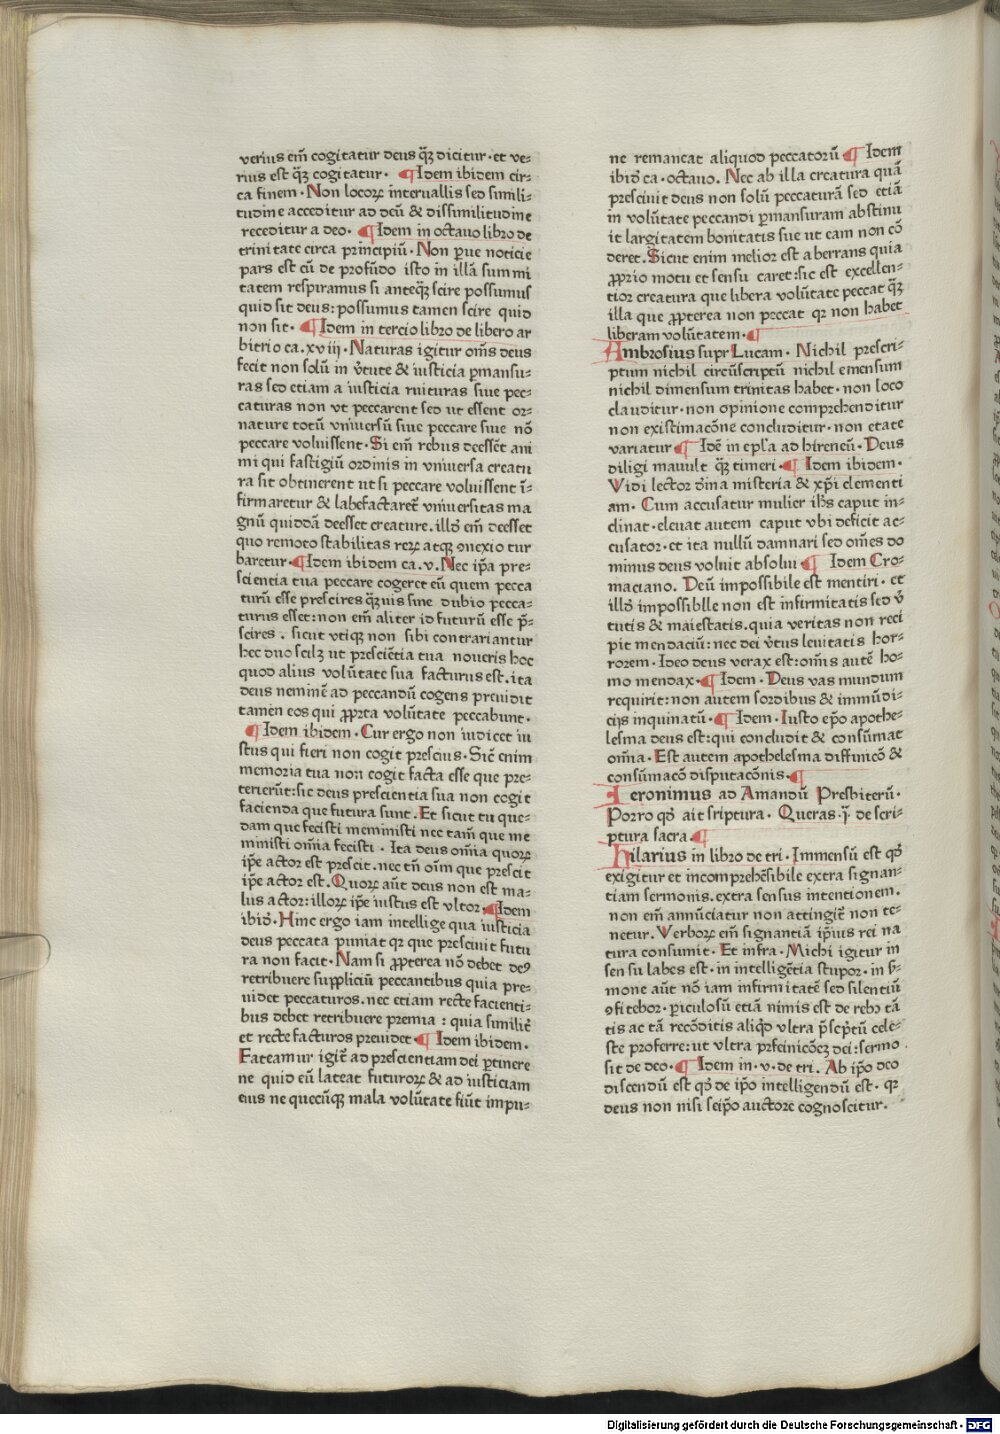 verius em̄ cogitatur deus qꝫ̄ dicitur·et ve⸗
rius est qꝫ̄ cogitatur· ¶Idem ibidem cir⸗
ca finem·Non locoꝝ interuallis sed simili⸗
tudine acceditur ad deū & dissimilitudine
receditur a deo·¶Idem in octauo libro de
trinitate circa principiū·Non ꝑue noticie
pars est cū de profūdo isto in illā summi
tatem respiramus si anteqꝫ̄ scire possumus
quid sit deus:possumus tamen scire quid
non sit·¶Idem in tercio libro de libero ar
bitrio ca.xviij·Naturas igitur om̄s deus
fecit non solū in v̓tute & iusticia ꝑmansu⸗
ras sed etiam a iusticia ruituras siue pec⸗
caturas non vt peccarent sed ut essent or⸗
nature totū vniuersū siue peccare siue nō
peccare voluissent·Si em̄ rebus deessēt ani
mi qui fastigiū ordinis in vniuersa creatu
ra sit obtinerent ut si peccare voluissent ī⸗
firmaretur & labefactaret᷑ vniuersitas ma
gnū quiddā deesset creature.illoꝫ em̄ deesset
quo remoto stabilitas reꝝ atqꝫ ꝯnexio tur
baretur·¶Idem ibidem ca.v.Nec ip̄a pre⸗
scientia tua peccare cogeret eū quem pecca
turū esse prescires qꝫ̄uis sine dubio pecca⸗
turus esset:non em̄ aliter id futurū esse p̄⸗
scires . sicut vtiqꝫ non sibi contrariantur
hec duo scilꝫ ut presciētia tua noueris hoc
quod alius volūtate sua facturus est.ita
deus neminē ad peccandū cogens preuidit
tamen eos qui ꝓpria volūtate peccabunt·
¶Idem ibidem·Cur ergo non iudicet iu
stus qui fieri non cogit prescius·Sic̄ enim
memoria tua non cogit facta esse que pre⸗
terierūt:sic deus prescientia sua non cogit
facienda que futura sunt.Et sicut tu que⸗
dam que fecisti meministi nec tam̄ que me
ministi om̄ia fecisti · Ita deus om̄ia quoꝝ
ip̄e actor est prescit.nec tn̄ oīm que prescit
ip̄e actor est.Quoꝝ aūt deus non est ma⸗
lus actor:illoꝝ ip̄e iustus est vltor·¶Idem
ibid̓·Hinc ergo iam intellige qua iusticia
deus peccata puniat qꝛ que presciuit futu
ra non facit·Nam si ꝓpterea nō debet deꝯ
retribuere suppliciū peccantibus quia pre⸗
uidet peccaturos.nec etiam recte facienti⸗
bus debet retribuere premia : quia similit̓
et recte facturos preuidet·¶Idem ibidem·
Fateamur igit᷑ ad prescientiam dei ꝑtinere
ne quid eū lateat futuroꝝ & ad iusticiam
eius ne quecūqꝫ mala volūtate fiūt impu⸗
ne remaneat aliquod peccatorū ¶Idem
ibid̓ ca·octauo. Nec ab illa creatura quā
presciuit deus non solū peccaturā sed etiā
in volūtate peccandi ꝑmansuram abstinu
it largitatem bonitatis sue ut eam non cō
deret.Sicut enim melior est aberrans quia
ꝓprio motu et sensu caret:sic est excellen⸗
tior creatura que libera volūtate peccat qꝫ̄
illa que ꝓpterea non peccat qꝛ non habet
liberam volūtatem·¶
Ambrosius supr Lucam. Nichil prescri⸗
ptum nichil circūscriptū nichil emensum
nichil dimensum trinitas habet·non loco
clauditur·non opinione comprehenditur
non existimacōne concluditur·non etate
variatur¶ Idē in epl̓a ad hireneū·Deus
diligi mauult qꝫ̄ timeri·¶ Idem ibidem·
Vidi lector diīna misteria & xp̄i clementi
am· Cum accusatur mulier ih̄s caput in⸗
clinat·eleuat autem caput vbi deficit ac⸗
cusator·et ita nullū damnari sed om̄es do
minus deus voluit absolui¶ Idem Cro⸗
maciano. Deū impossibile est mentiri· et
illoꝫ impossibile non est infirmitatis sed v̓
tutis & maiestatis.quia veritas non reci
pit mendaciū:nec dei v̓tus leuitatis hor⸗
rorem·Ideo deus verax est:om̄is autē ho⸗
mo mendax·¶Idem·Deus vas mundum
requirit:non autem sordibus & immūdi⸗
cijs inquinatū·¶ Idem·Iusto ep̄o apothe⸗
lesma deus est:qui concludit & consūmat
om̄ia·Est autem apothelesma diffinicō &
consūmacō disputacōnis·¶
Ieronimus ad Amandū Presbiterū·
Porro qd̓ ait scriptura. Queras·q̄· de scri⸗
ptura sacra.¶
hilarius in libro de tri·Immensū est qd̓
exigitur et incomprehēsibile extra signan⸗
tiam sermonis.extra sensus intentionem.
non em̄ annūciatur non attingit᷑ non te⸗
netur.Verboꝝ em̄ signantiā ip̄ius rei na
tura consumit· Et infra·Michi igitur in
sensu labes est·in intelligētia stupor·in s̓⸗
mone aūt nō iam infirmitatē sed silentiū
ꝯfitebor·ꝑiculosū etiā nimis est de rebꝫ tā
tis ac tā recōditis aliqd̓ vltra p̄sc̓ptū cele⸗
ste proferre:ut vltra prefinicōeꝫ dei:sermo
sit de deo·¶Idem in·v·de tri. Ab ip̄o deo
discendū est qd̓ de ip̄o intelligendū est· qꝛ
deus non nisi seip̄o auctore cognoscitur.
Digitalisierung gefördert durch die Deutsche Forschungsgemeinschaft - DFG